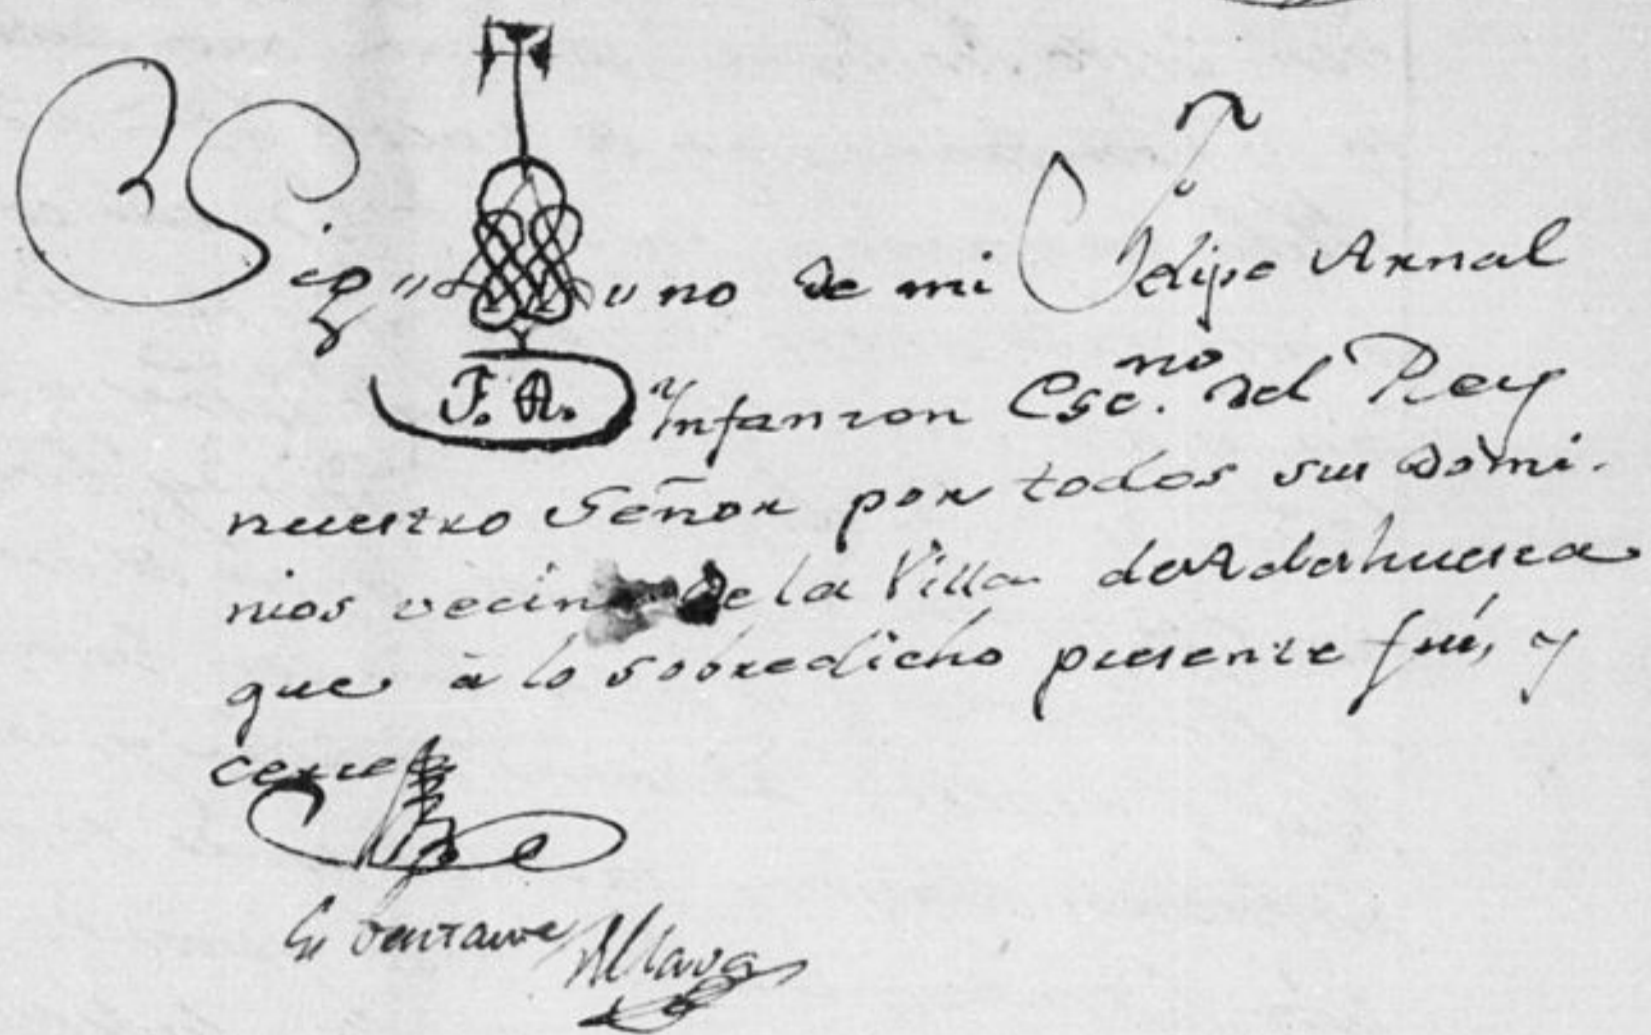 Sig no de mi Felipe Arnal
F. A. Ynfanzon Esc.no del Rey
nuestro Señor por todos sus Domi-
nios vecino de la Villa de Adahuesca
que à lo sobredicho presente fuí, y
cerré